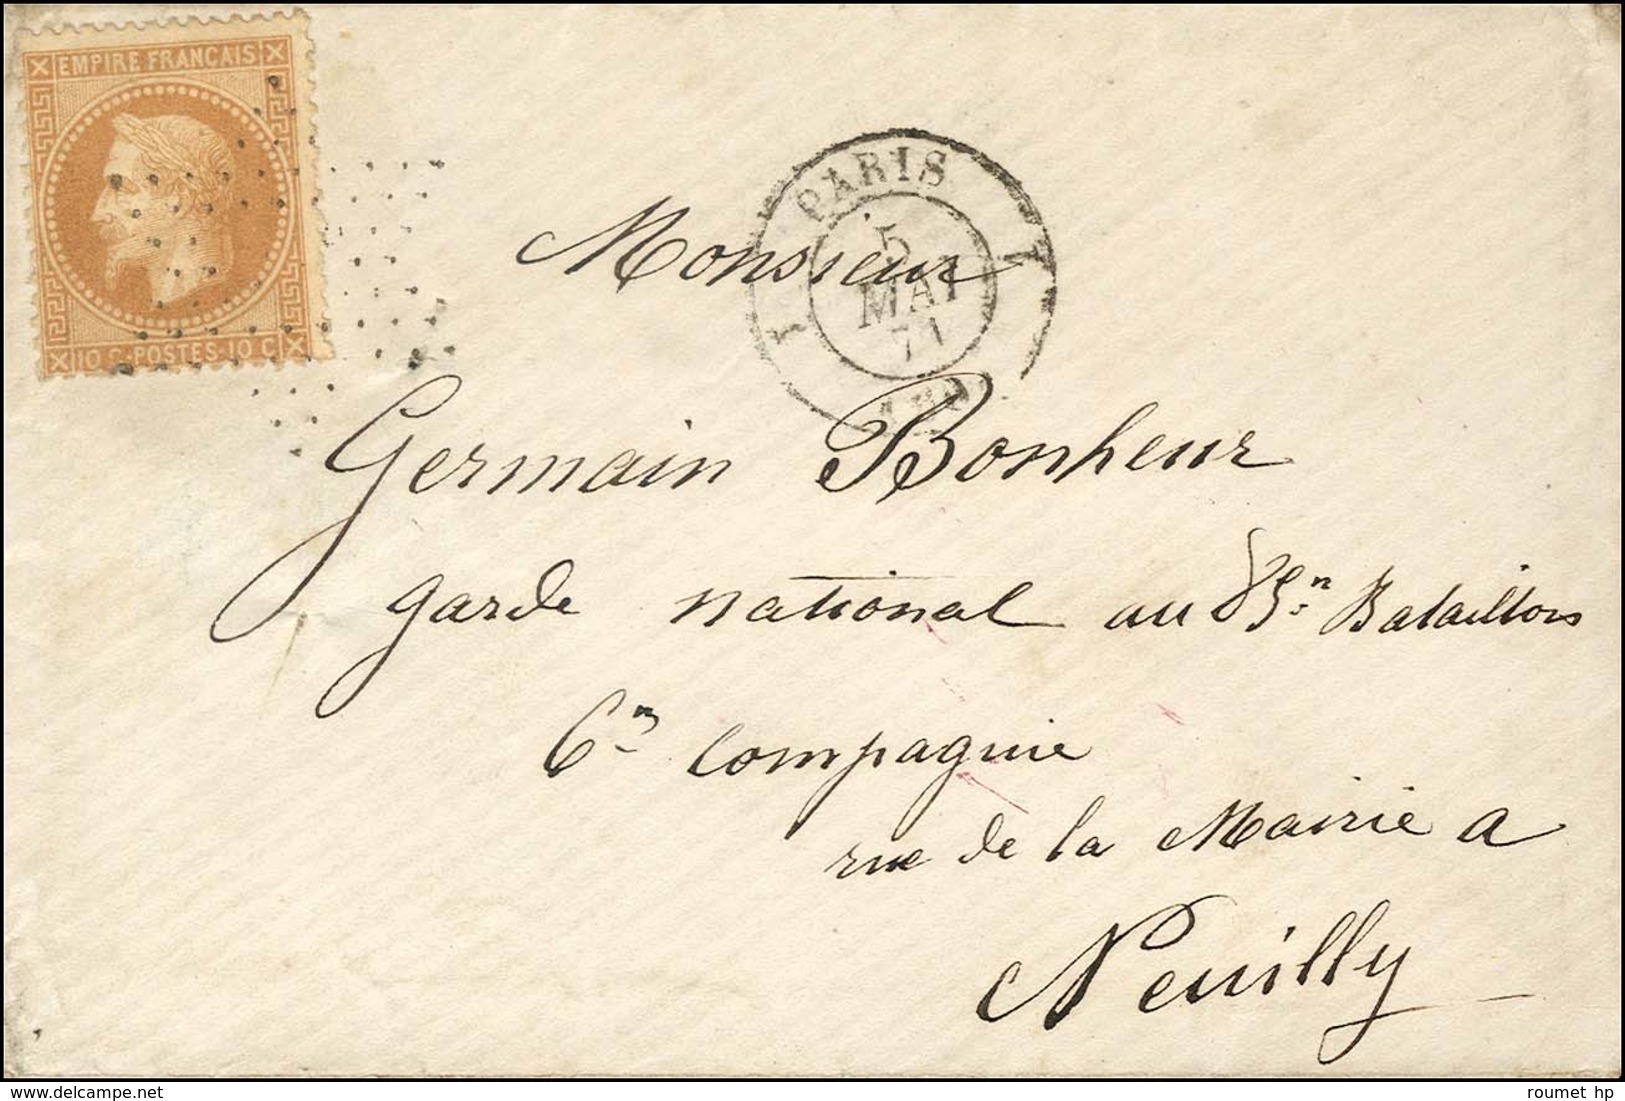 EMPIRE FRANCAIS
10 C. POSTES. 10 C
PARIS
5
MAI
71
Monsieur
Germain Bonheur
garde national au Bataillon
6m compagnie
rue de la Mairie a
Neuilly
roumet hp